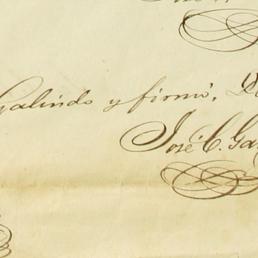 Galindo y firmó,
José C. Ga